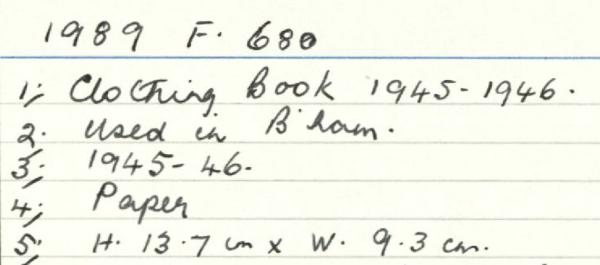 1989 F. 680
1; Clothing Book 1945-1946.
2. Used in B'ham.
3; 1945-46.
4; Paper
5; H. 13.7 cm x W. 9.3 cm.